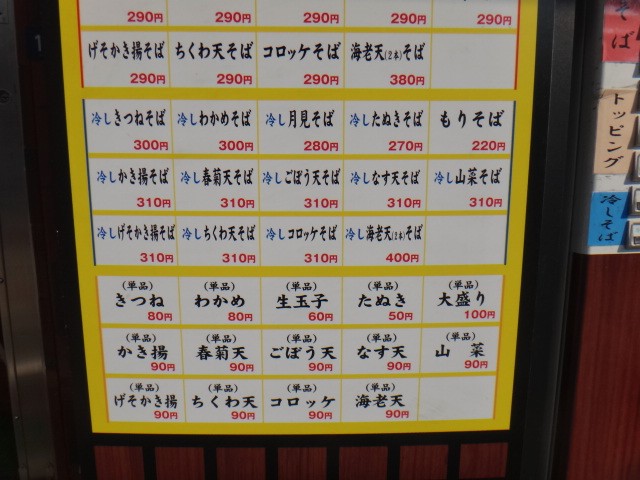 290円 290円 290円 290円 290円
げそかき揚そば ちくわ天そば コロッケそば 海老天(2本)そば
290円 290円 290円 380円
冷しきつねそば 冷しわかめそば 冷し月見そば 冷したぬきそば もりそば
300円 300円 280円 270円 220円
冷しかき揚そば 冷し春菊天そば 冷しごぼう天そば 冷しなす天そば 冷し山菜そば
310円 310円 310円 310円 310円
冷しげそかき揚そば 冷しちくわ天そば 冷しコロッケそば 冷し海老天(2本)そば
310円 310円 310円 400円
(単品) (単品) (単品) (単品) (単品)
きつね わかめ 生玉子 たぬき 大盛り
80円 80円 60円 50円 100円
(単品) (単品) (単品) (単品) (単品)
かき揚 春菊天 ごぼう天 なす天 山菜
90円 90円 90円 90円 90円
(単品) (単品) (単品) (単品)
げそかき揚 ちくわ天 コロッケ 海老天
90円 90円 90円 90円
そば
トッピング
冷しそば
1